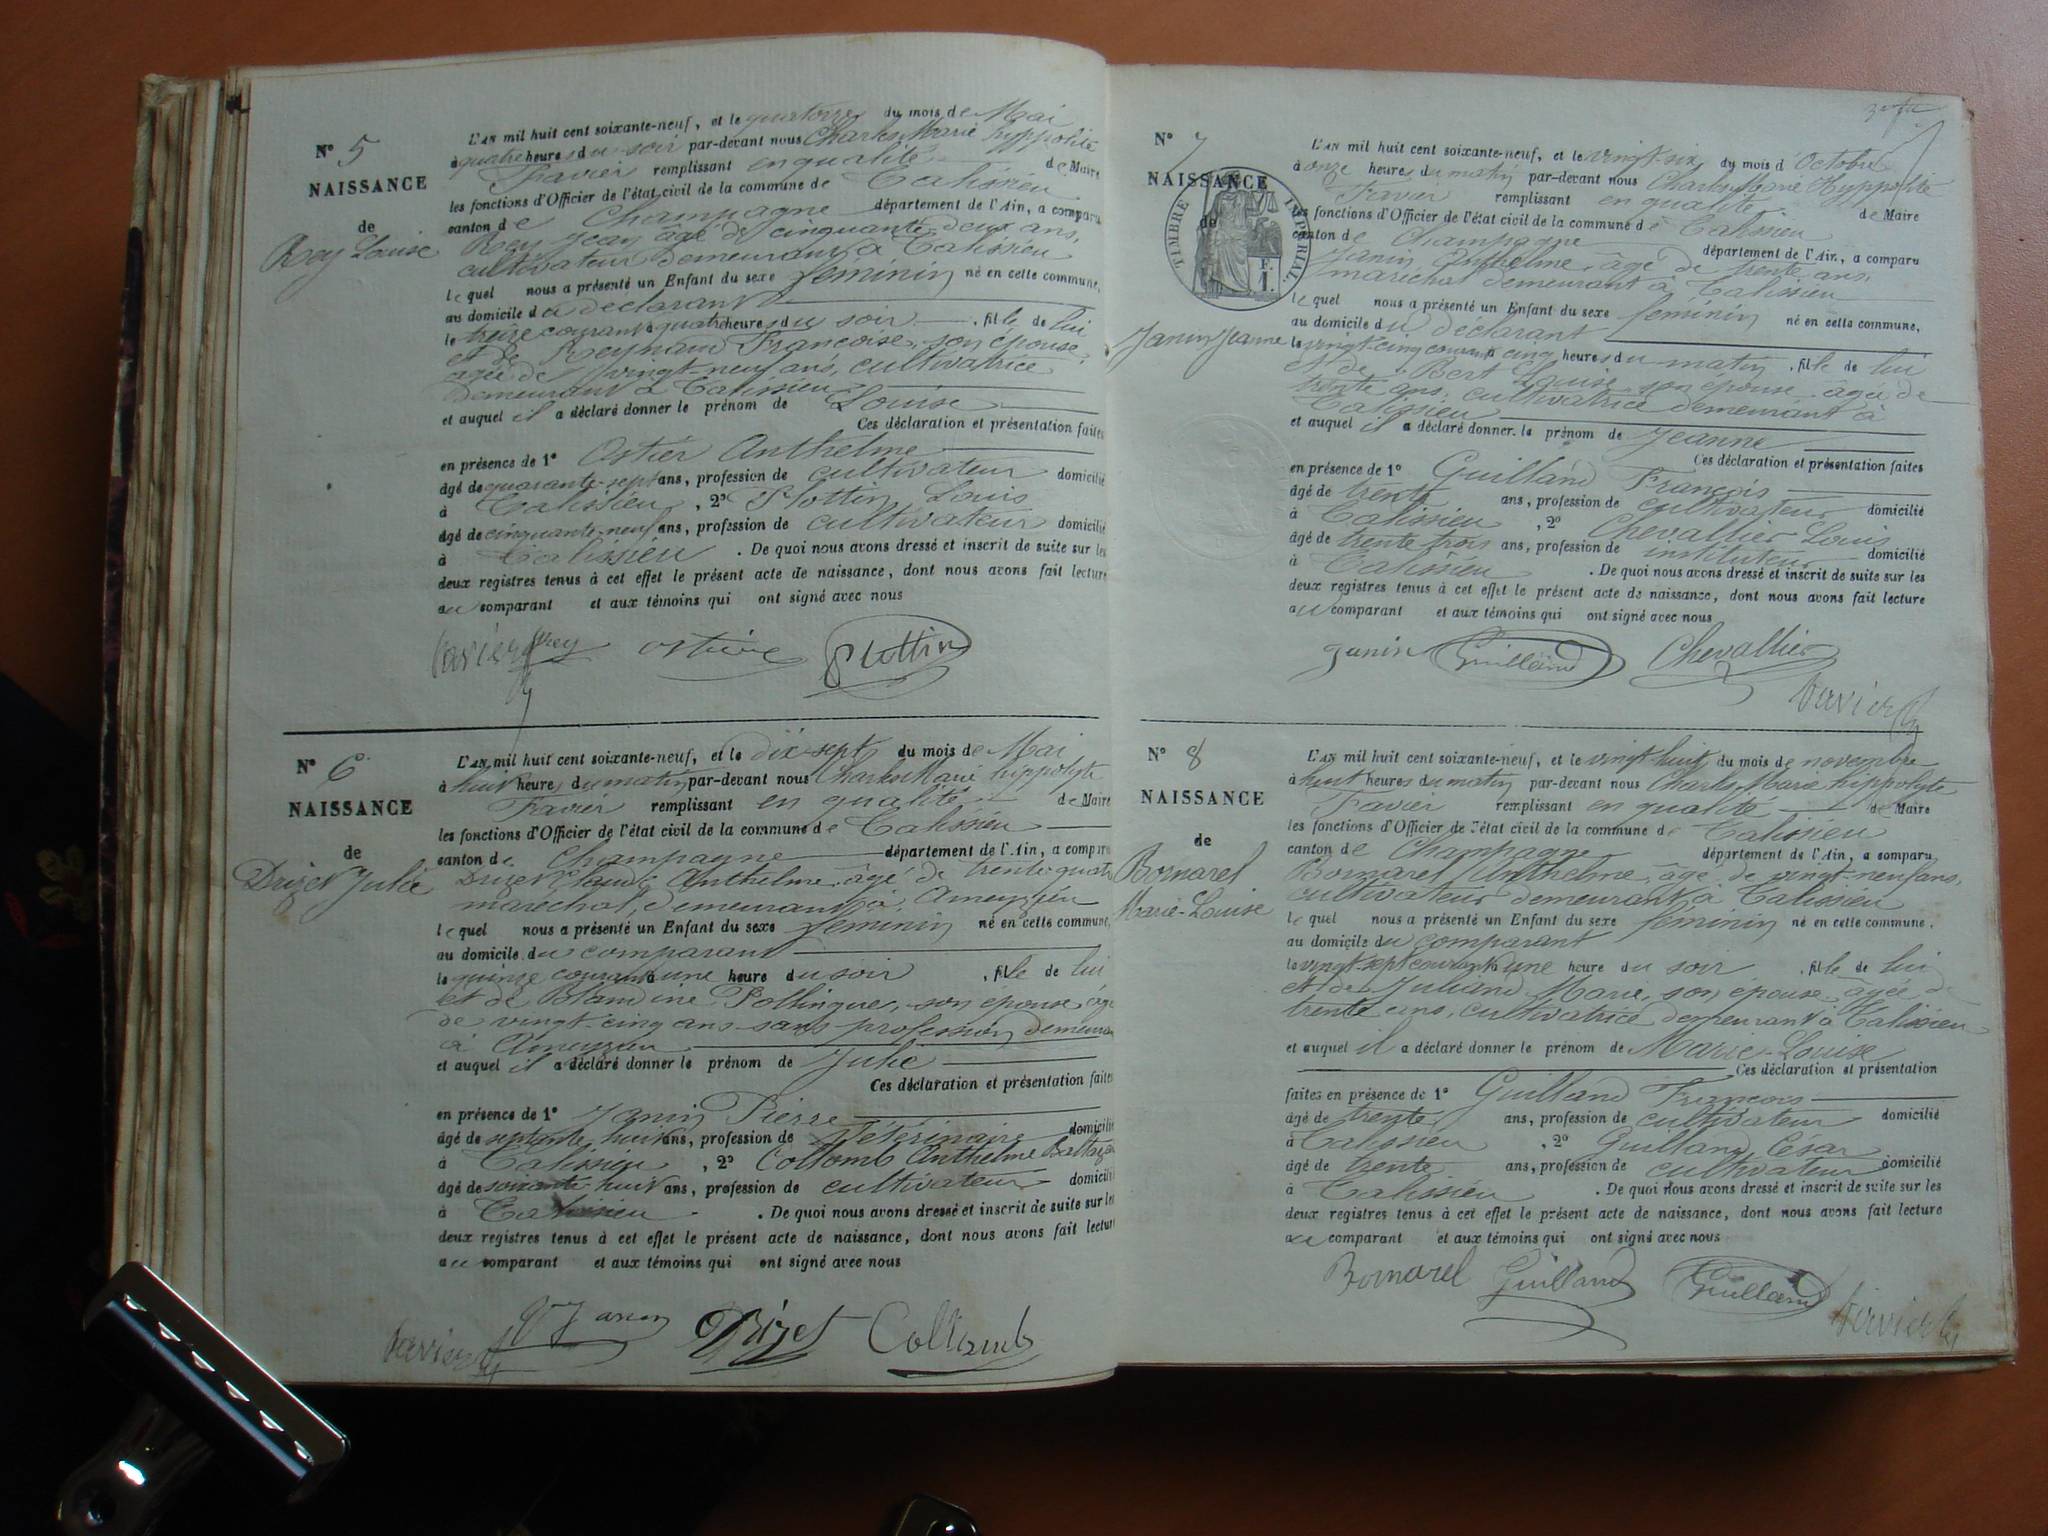 N° 5
NAISSANCE
de
Rey Louise
L'AN mil huit cent soixante-neuf, et le quatorze du mois de Mai
à quatre heures du soir par-devant nous Charles Marie hyppolite
Favier remplissant en qualité de Maire
les fonctions d'Officier de l'état civil de la commune de Talissieu
canton de Champagne département de l'Ain, a comparu
Rey Jean âgé de cinquante deux ans,
cultivateur demeurant à Talissieu
lequel nous a présenté un Enfant du sexe féminin né en cette commune,
au domicile du déclarant
le treize courant à quatre heures du soir , fille de lui
et de Reynaud Françoise, son épouse,
agée de vingt-neuf ans, cultivatrice
demeurant à Talissieu
et auquel il a déclaré donner le prénom de Louise
Ces déclaration et présentation faites
en présence de 1° Ostier Anthelme
âgé de quarante-sept ans, profession de cultivateur domicilié
à Talissieu , 2° Plottin Louis
âgé de cinquante-neuf ans, profession de cultivateur domicilié
à Talissieu . De quoi nous avons dressé et inscrit de suite sur les
deux registres tenus à cet effet le présent acte de naissance, dont nous avons fait lecture
au comparant et aux témoins qui ont signé avec nous
favier rey ostier Plottin
N° 6
NAISSANCE
de
Drizet Julie
L'AN mil huit cent soixante-neuf, et le dix-sept du mois de Mai
à huit heure du matin par-devant nous Charles Marie hippolyte
Favier remplissant en qualité de Maire
les fonctions d'Officier de l'état civil de la commune de Talissieu
canton de Champagne département de l'Ain, a comparu
Drizet Claude Anthelme, âgé de trente-quatre
maréchal, demeurant à Ameyzieu
lequel nous a présenté un Enfant du sexe féminin né en cette commune,
au domicile du comparant
le quinze courant à une heure du soir , fille de lui
et de Blandine Pollingue, son épouse, âgée
de vingt-cinq ans sans profession demeurant
à Ameyzieu
et auquel il a déclaré donner le prénom de Julie
Ces déclaration et présentation faites
en présence de 1° Janin Pierre
âgé de septante huit ans, profession de Vétérinaire domicilié
à Talissieu , 2° Collomb Anthelme Baltazar
âgé de soixante-huit ans, profession de cultivateur domicilié
à Talissieu . De quoi nous avons dressé et inscrit de suite sur les
deux registres tenus à cet effet le présent acte de naissance, dont nous avons fait lecture
au comparant et aux témoins qui ont signé avec nous
favier Janin Drizet Collomb
N° 7
NAISSANCE
de
TIMBRE IMPERIAL
F.
1.
Janin Jeanne
L'AN mil huit cent soixante-neuf, et le vingt-six du mois d Octobre
à onze heures du matin par-devant nous Charles Marie Hyppolite
Favier remplissant en qualité de Maire
les fonctions d'Officier de l'état civil de la commune de Talissieu
canton de Champagne département de l'Ain, a comparu
Janin Anthelme, âgé de trente ans,
maréchal demeurant à Talissieu
lequel nous a présenté un Enfant du sexe féminin né en cette commune,
au domicile du déclarant
le vingt-cinq courant à cinq heures du matin , fille de lui
et de Bert Louise, son épouse, âgée de
trente ans, cultivatrice demeurant à
Talissieu
et auquel il a déclaré donner le prénom de Jeanne
Ces déclaration et présentation faites
en présence de 1° Guilland François
âgé de trente ans, profession de cultivateur domicilié
à Talissieu , 2° Chevallier Louis
âgé de trente trois ans, profession de instituteur domicilié
à Talissieu . De quoi nous avons dressé et inscrit de suite sur les
deux registres tenus à cet effet le présent acte de naissance, dont nous avons fait lecture
au comparant et aux témoins qui ont signé avec nous
janin Guilland Chevallier
favier
N° 8
NAISSANCE
de
Bornarel
Marie-Louise
L'AN mil huit cent soixante-neuf, et le vingt huit du mois de novembre
à huit heures du matin par-devant nous Charles Marie hippolyte
Favier remplissant en qualité de Maire
les fonctions d'Officier de l'état civil de la commune de Talissieu
canton de Champagne département de l'Ain, a comparu
Bornarel Anthelme, âgé de vingt-neuf ans,
cultivateur demeurant à Talissieu
lequel nous a présenté un Enfant du sexe féminin né en cette commune,
au domicile du comparant
le vingt-sept courant à une heure du soir , fille de lui
et de Juliand Marie, son épouse, agée de
trente ans, cultivatrice demeurant à Talissieu
et auquel il a déclaré donner le prénom de Marie-Louise
Ces déclaration et présentation
faites en présence de 1° Guilland François
âgé de trente ans, profession de cultivateur domicilié
à Talissieu , 2° Guilland César
âgé de trente ans, profession de cultivateur domicilié
à Talissieu . De quoi nous avons dressé et inscrit de suite sur les
deux registres tenus à cet effet le présent acte de naissance, dont nous avons fait lecture
au comparant et aux témoins qui ont signé avec nous
Bornarel Guilland Guilland favier